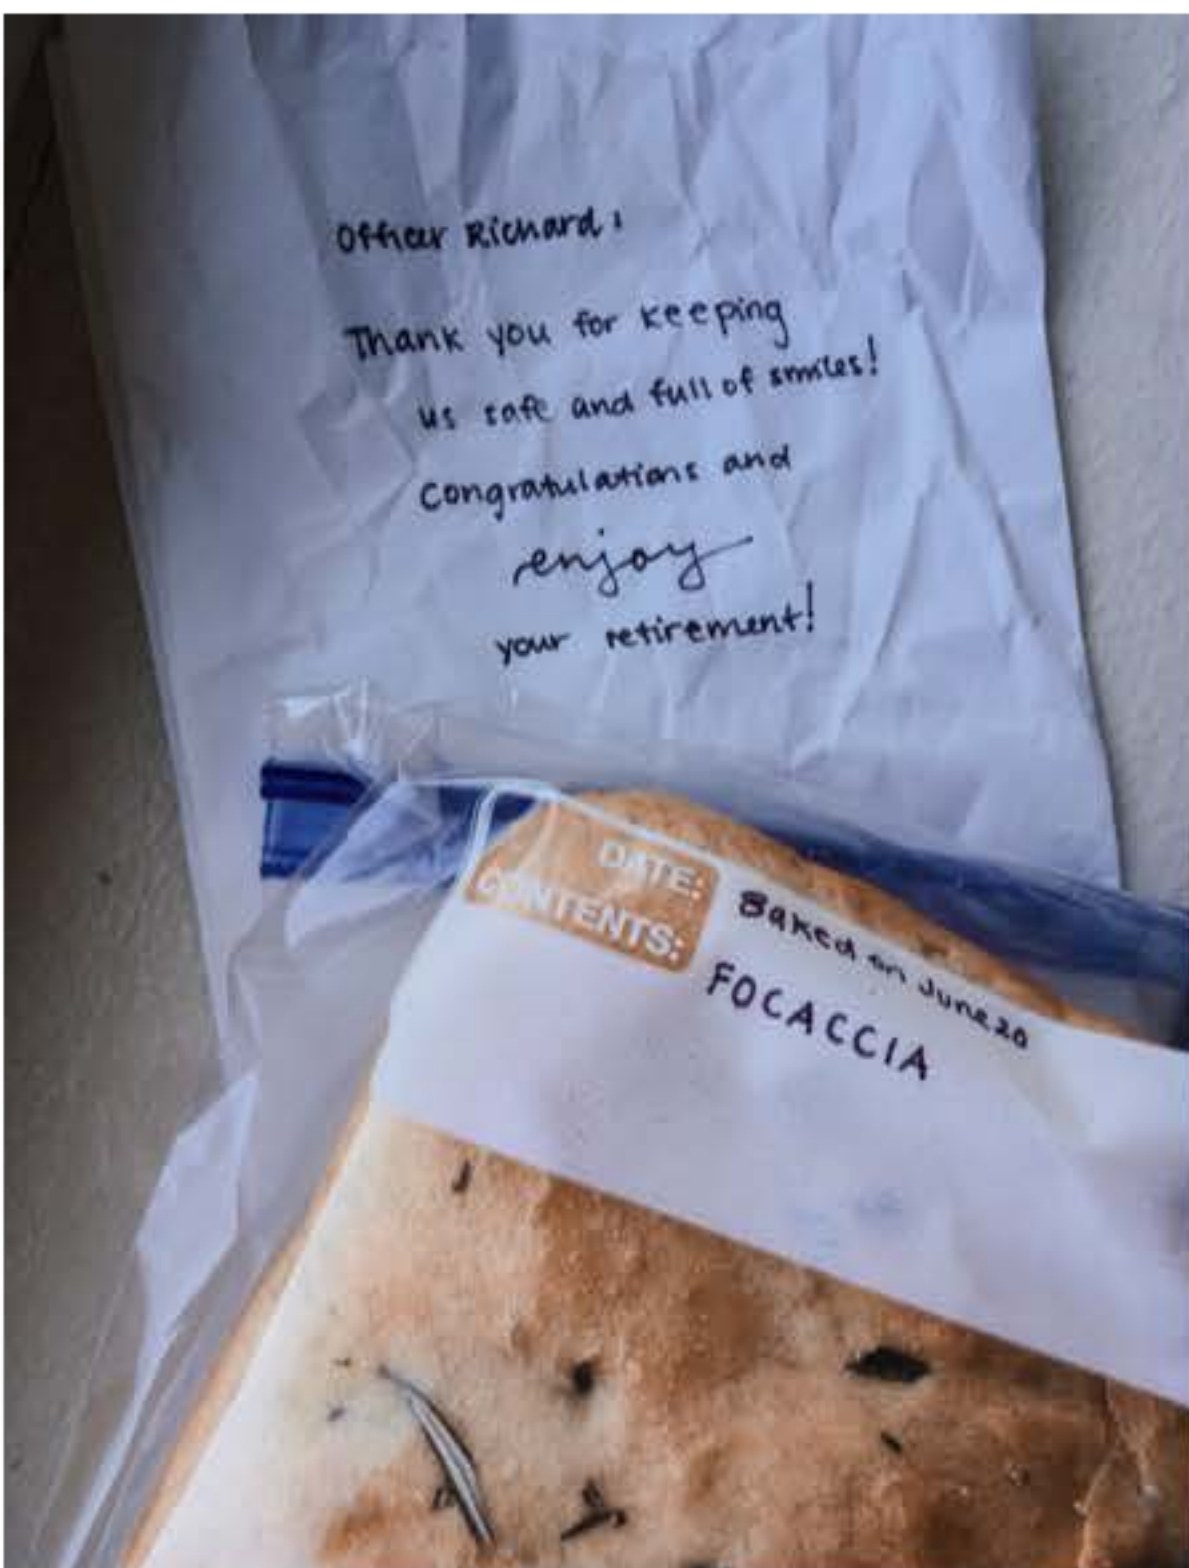 Officer Richard:
Thank you for keeping
us safe and full of smiles!
Congratulations and
enjoy
your retirement!
DATE: Baked on June 20
CONTENTS: FOCACCIA